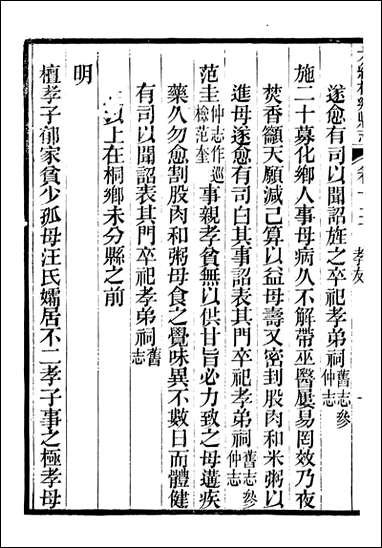 遂愈有司以聞詔旌之卒祀孝弟祠舊志參仲志
施二十募化鄉人事母病久不解帶巫醫屢易罔效乃夜
焚香籲天願減己算以益母壽又密封股肉和米粥以
進母遂愈有司白其事詔表其門卒祀孝弟祠舊志參仲志
范圭仲志作巡檢范奎事親孝貧無以供甘旨必力致之母遘疾
藥久勿愈割股肉和粥母食之覺味異不數日而體健
有司以聞詔表其門卒祀孝弟祠舊志
以上在桐鄉未分縣之前
明
檀孝子郁家貧少孤母汪氏孀居不二孝子事之極孝母
桐鄉縣志
卷十
孝友